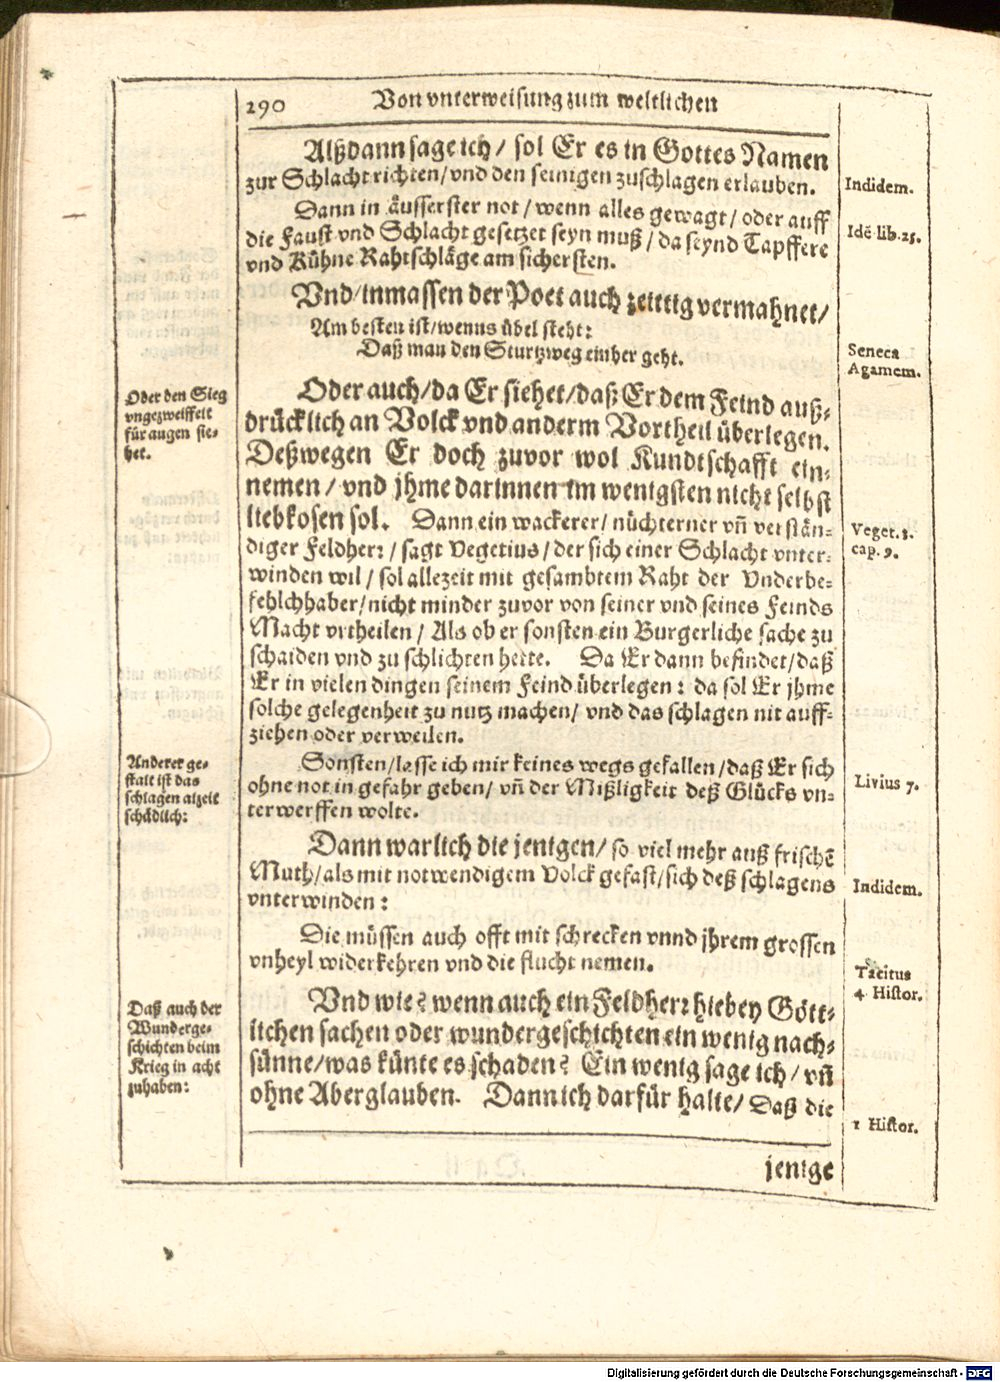 290
Von vnterweisung zum weltlichen
Alßdann sage ich/ sol Er es in Gottes Namen
zur Schlacht richten/ vnd den seinigen zuschlagen erlauben.
Indidem.
Dann in äusserster not/ wenn alles gewagt/ oder auff
die Faust vnd Schlacht gesetzet seyn muß/ da seynd Tapffere
vnd Kühne Rahtschläge am sichersten.
Idē lib. 25.
Vnd/ inmassen der Poet auch zeittig vermahnet/
Am besten ist/ wenns übel steht:
Daß man den Sturtzweg einher geht.
Seneca
Agamem.
Oder den Sieg
vngezweiffelt
für augen sie-
het.
Oder auch/ da Er siehet/ daß Er dem Feind auß-
drücklich an Volck vnd anderm Vortheil überlegen.
Deßwegen Er doch zuvor wol Kundtschafft ein-
nemen/ vnd jhme darinnen im wenigsten nicht selbst
liebkosen sol. Dann ein wackerer/ nüchterner vñ verstän-
diger Feldherr/ sagt Vegetius/ der sich einer Schlacht vnter-
winden wil/ sol allezeit mit gesambtem Raht der Vnderbe-
fehlchhaber/ nicht minder zuvor von seiner vnd seines Feinds
Macht vrtheilen/ Als ob er sonsten ein Burgerliche sache zu
schaiden vnd zu schlichten hette. Da Er dann befindet/ daß
Er in vielen dingen seinem Feind überlegen: da sol Er jhme
solche gelegenheit zu nutz machen/ vnd das schlagen nit auff-
ziehen oder verweilen.
Veget. 3.
cap. 9.
Anderer ge-
stalt ist das
schlagen alzeit
schädlich:
Sonsten/ lasse ich mir keines wegs gefallen/ daß Er sich
ohne not in gefahr geben/ vñ der Mißligkeit deß Glücks vn-
terwerffen wolte.
Livius 7.
Dann warlich die jenigen/ so viel mehr auß frischē
Muth/ als mit notwendigem Volck gefast/ sich deß schlagens
vnterwinden:
Indidem.
Die müssen auch offt mit schrecken vnnd jhrem grossen
vnheyl widerkehren vnd die flucht nemen.
Tacitus
4 Histor.
Daß auch der
Wunderge-
schichten beim
Krieg in acht
zuhaben:
Vnd wie? wenn auch ein Feldherr hiebey Gött-
lichen sachen oder wundergeschichten ein wenig nach-
sünne/ was künte es schaden? Ein wenig sage ich/ vñ
ohne Aberglauben. Dann ich darfür halte/ Daß die
1 Histor.
jenige
Digitalisierung gefördert durch die Deutsche Forschungsgemeinschaft - DFG